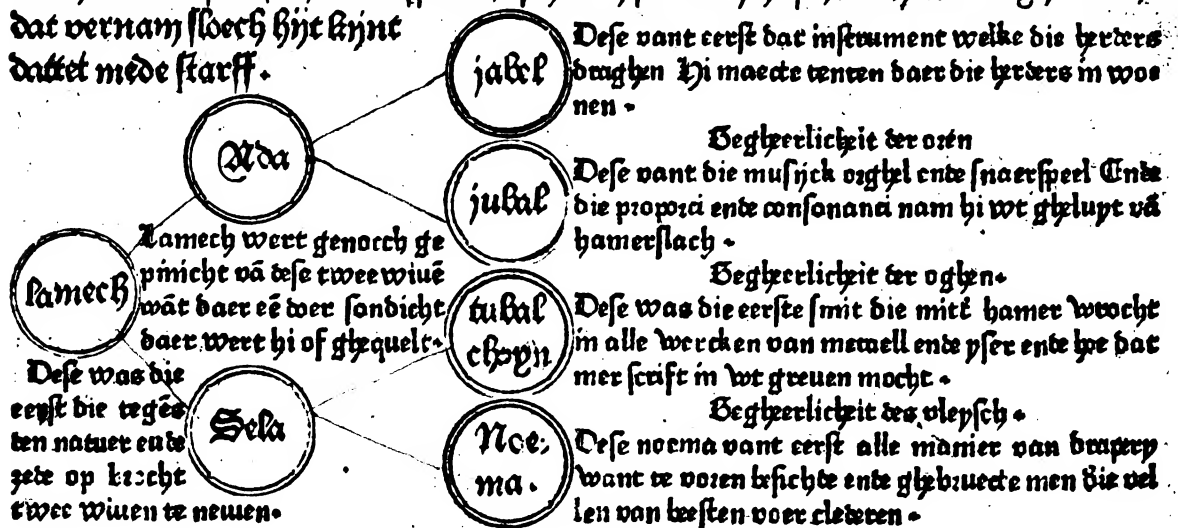 dat vernam sloech hijt kijnt
dattet mede starff.
Ada
lamech
Lamech wert genoech ge
pinicht vā dese twee wiuē
wāt daer eē doer sondicht
daer wert hi of ghequelt.
Dese was die
eerst die tegēs
den natuer ende
zede op brocht
twee wiuen te nemen.
Sela
jabel
Dese vant eerst dat instrument welke die herders
draghen Hi maecte tenten daer die herders in woe
nen.
Begheerlicheit der oren
jubal
Dese vant die musijck orghel ende snaerspeel Ende
die proporci ende consonanci nam hi wt gheluyt vā
hamerslach.
Begheerlicheit der oghen.
tubal
chayn
Dese was die eerste smit die mitt hamer wrocht
in alle wercken van metaell ende yser ende hoe dat
mer scrift in wt greuen mocht.
Begheerlicheit des vleysch.
Noe;
ma.
Dese noema vant eerst alle manier van drapery
want te voren besichde ende ghebruecte men die vel
len van beesten voer clederen.